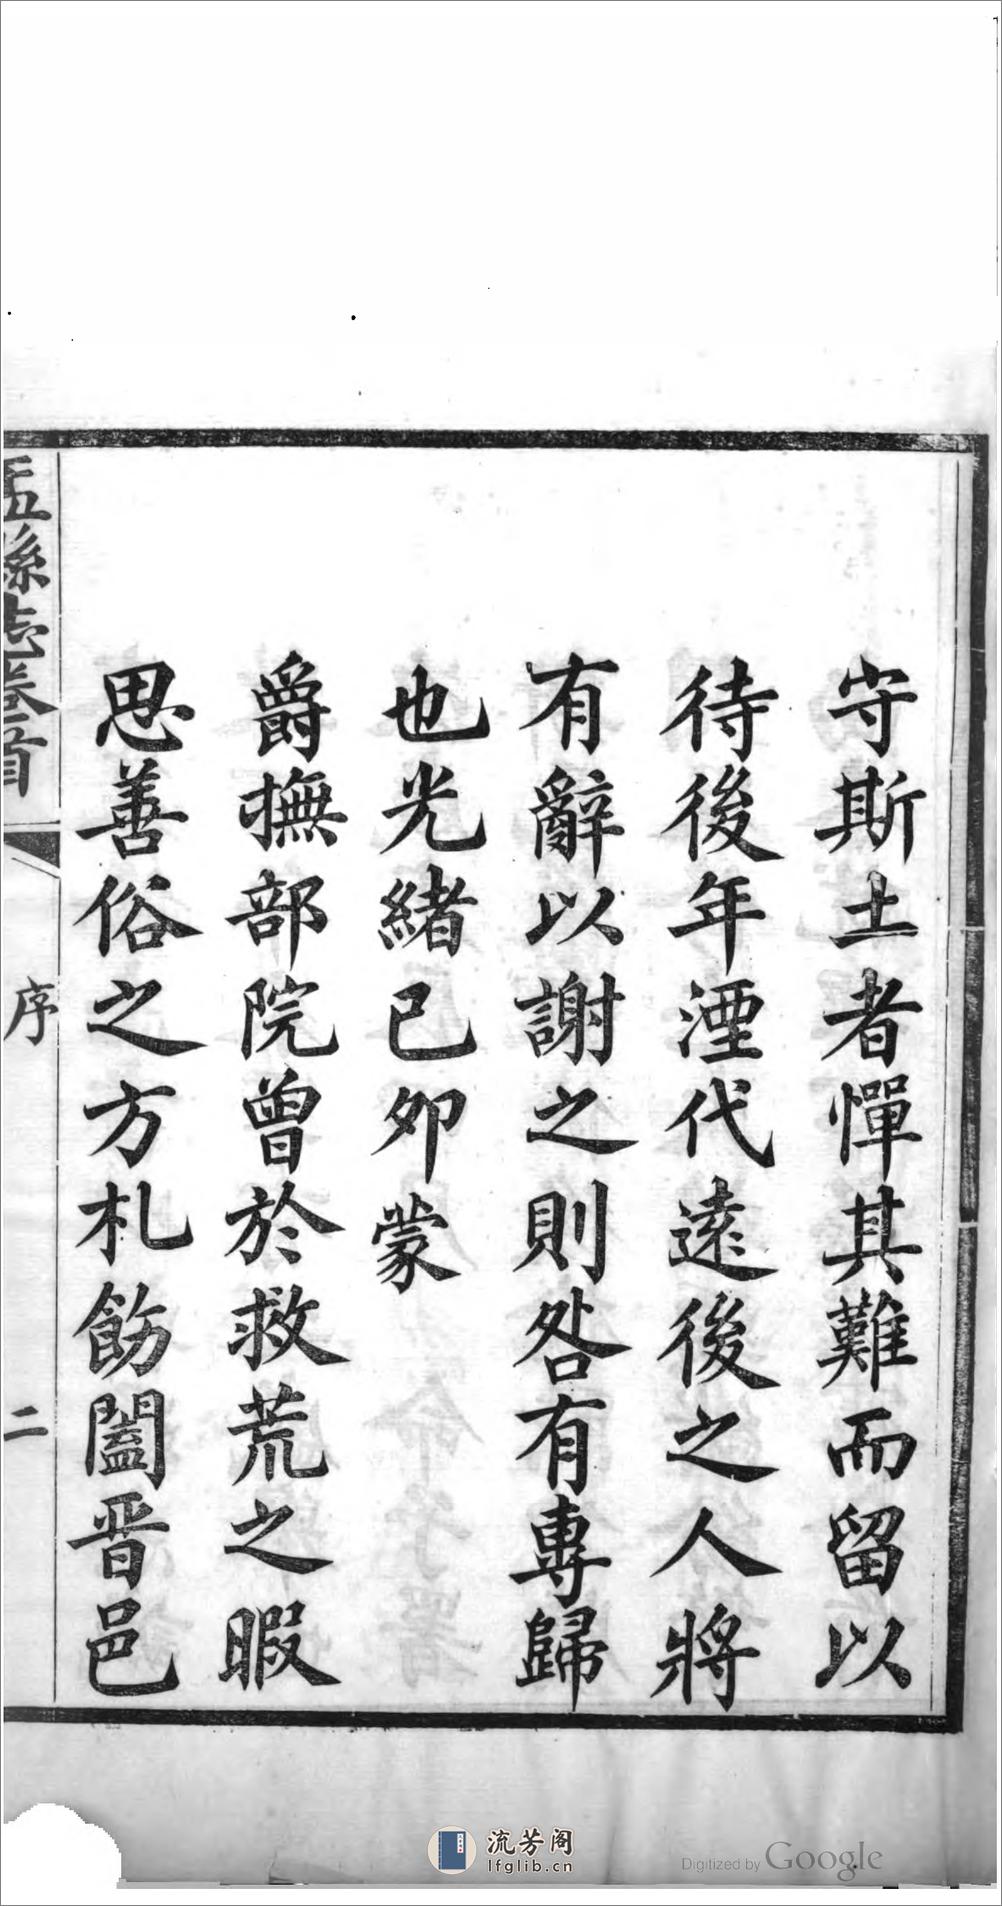 守斯土者憚其難而留以
待後年湮代遠後之人將
有辭以謝之則咎有專歸
也光緒己卯蒙
爵撫部院曾於救荒之暇
思善俗之方札飭闔晋邑
縣志卷首
序
二
流芳阁
lfglib.cn
Digitized by Google